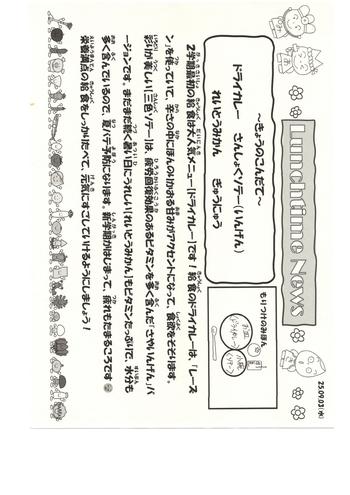 25.09.03(水)
Lunchtime News
～きょうのこんだて～
ドライカレー　さんしょくソテー(いんげん)
れいとうみかん　ぎゅうにゅう
もりつけのみほん
2学期最初の給食は大人気メニュー『ドライカレー』です！給食のドライカレーは、『レーズ
ン』を使っていて、辛さの中にほんのりかおる甘みがアクセントになって、食欲をそそります。
彩りが美しい『三色ソテー』は、疲労回復効果のあるビタミンを多く含んだ「さやいんげん」バ
ージョンです。まだまだ続く暑い日にうれしい『れいとうみかん』もビタミンたっぷりで、水分も
多く含んでいるので、夏バテ予防になります。新学期がはじまって、疲れもたまるころです
栄養満点の給食をしっかりたべて、元気にすごしていけるようにしましょう！